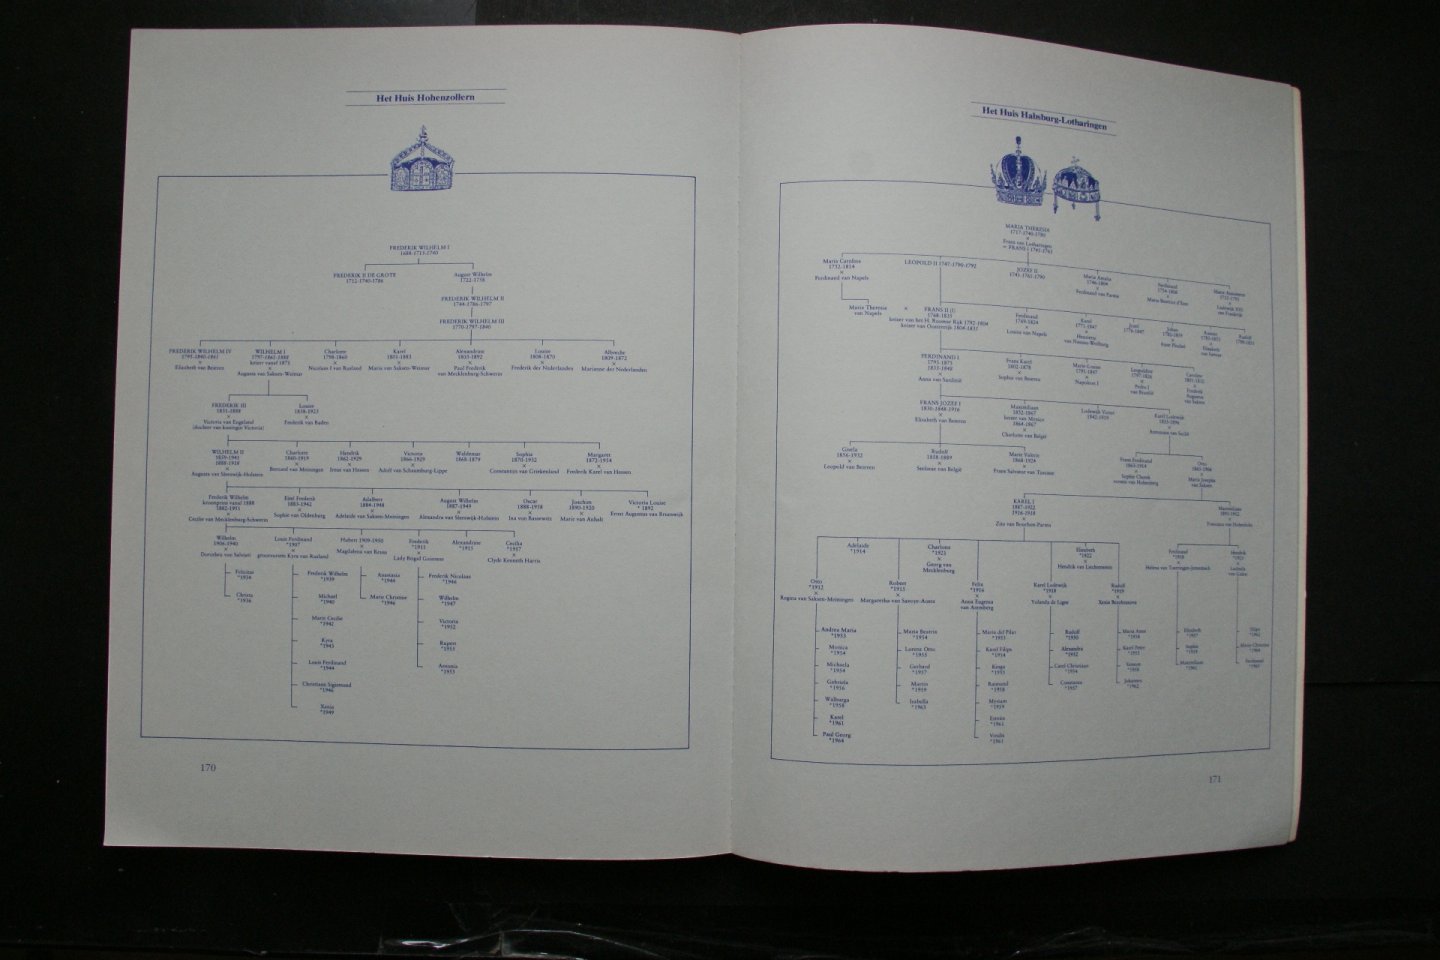 Het Huis Hohenzollern
FREDERIK WILHELM I
1688-1713-1740
FREDERIK II DE GROTE
1712-1740-1786
August Wilhelm
1722-1758
FREDERIK WILHELM II
1744-1786-1797
FREDERIK WILHELM III
1770-1797-1840
FREDERIK WILHELM IV
1795-1840-1861
×
Elisabeth van Beieren
WILHELM I
1797-1861-1888
keizer vanaf 1871
×
Augusta van Saksen-Weimar
Charlotte
1798-1860
×
Nicolaas I van Rusland
Karel
1801-1883
×
Maria van Saksen-Weimar
Alexandrine
1803-1892
×
Paul Frederik
van Mecklenburg-Schwerin
Louise
1808-1870
×
Frederik der Nederlanden
Albrecht
1809-1872
×
Marianne der Nederlanden
FREDERIK III
1831-1888
×
Victoria van Engeland
(dochter van koningin Victoria)
Louise
1838-1923
×
Frederik van Baden
WILHELM II
1859-1941
1888-1918
×
Augusta van Sleeswijk-Holstein
Charlotte
1860-1919
×
Bernard van Meiningen
Hendrik
1862-1929
×
Irene van Hessen
Victoria
1866-1929
×
Adolf van Schaumburg-Lippe
Waldemar
1868-1879
Sophia
1870-1932
×
Constantijn van Griekenland
Margaret
1872-1954
×
Frederik Karel van Hessen
Frederik Wilhelm
kroonprins vanaf 1888
1882-1951
×
Cecilie van Mecklenburg-Schwerin
Eitel Frederik
1883-1942
×
Sophie van Oldenburg
Adalbert
1884-1948
×
Adelaide van Saksen-Meiningen
August Wilhelm
1887-1949
×
Alexandra van Sleeswijk-Holstein
Oscar
1888-1958
×
Ina van Bassewitz
Joachim
1890-1920
×
Marie van Anhalt
Victoria Louise
* 1892
×
Ernst Augustus van Brunswijk
Wilhelm
1906-1940
×
Dorothea van Salviati
Louis Ferdinand
*1907
×
grootvorstin Kyra van Rusland
Hubert 1909-1950
×
Magdalena van Reuss
Frederik
*1911
×
Lady Brigid Guinness
Alexandrine
*1915
Cecilia
*1917
×
Clyde Kenneth Harris
Felicitas
*1934
Christa
*1936
Frederik Wilhelm
*1939
Michael
*1940
Marie Cecilie
*1942
Kyra
*1943
Louis Ferdinand
*1944
Christiaan Sigismund
*1946
Xenia
*1949
Anastasia
*1944
Marie Christine
*1946
Frederik Nicolaas
*1946
Wilhelm
*1947
Victoria
*1952
Rupert
*1955
Antonia
*1955
170
Het Huis Habsburg-Lotharingen
MARIA THERESIA
1717-1740-1780
×
Frans van Lotharingen
= FRANS I 1745-1765
Maria Carolina
1752-1814
×
Ferdinand van Napels
LEOPOLD II 1747-1790-1792
JOZEF II
1741-1765-1790
Maria Amalia
1746-1804
×
Ferdinand van Parma
Ferdinand
1754-1806
×
Maria Beatrice d'Este
Maria Antoinette
1755-1793
×
Lodewijk XVI
van Frankrijk
Maria Theresia
van Napels
×
FRANS II (I)
1768-1835
keizer van het H. Roomse Rijk 1792-1804
keizer van Oostenrijk 1804-1835
Ferdinand
1769-1824
×
Louise van Napels
Karel
1771-1847
×
Henriette
van Nassau-Weilburg
Jozef
1776-1847
Johan
1782-1859
×
Anna Plochel
Rainer
1783-1853
×
Elisabeth
van Savoye
Rudolf
1788-1831
FERDINAND I
1793-1875
1835-1848
×
Anna van Sardinië
Frans Karel
1802-1878
×
Sophia van Beieren
Marie-Louise
1791-1847
×
Napoleon I
Leopoldine
1797-1826
×
Pedro I
van Brazilië
Caroline
1801-1832
×
Frederik
Augustus
van Saksen
FRANS JOZEF I
1830-1848-1916
×
Elisabeth van Beieren
Maximiliaan
1832-1867
keizer van Mexico
1864-1867
×
Charlotte van België
Lodewijk Victor
1842-1919
Karel Lodewijk
1833-1896
×
Annunziata van Sicilië
Gisela
1856-1932
×
Leopold van Beieren
Rudolf
1858-1889
×
Stefanie van België
Marie Valerie
1868-1924
×
Frans Salvator van Toscane
Frans Ferdinand
1863-1914
×
Sophie Chotek
Otto
1865-1906
×
Maria Josepha
van Saksen
KAREL I
1887-1922
1916-1918
×
Zita van Bourbon-Parma
Maximiliaan
1895-1952
×
Adelaide
*1914
Charlotte
*1921
×
Georg van
Mecklenburg
Elisabeth
*1922
×
Hendrik van Liechtenstein
Ferdinand
*1918
×
Hendrik
Otto
*1912
×
Regina van Saksen-Meiningen
Robert
*1915
×
Margaretha van Savoye-Aosta
Felix
*1916
×
Anna Eugenia
van Arenberg
Karel Lodewijk
*1918
×
Yolanda de Ligne
Rudolf
*1919
×
Xenia Besobrasova
Andrea Maria
*1953
Monica
*1954
Michaela
*1954
Gabriela
*1956
Walburga
*1958
Karel
*1961
Paul Georg
*1964
Maria Beatrix
*1954
Lorenz Otto
*1955
Gerhard
*1957
Martin
*1959
Isabella
*1963
Marie del Pilar
*1953
Karel Filips
*1954
Kinga
*1955
Raimund
*1958
Myriam
*1959
Estván
*1961
Viridis
*1961
Rudolf
*1950
Alexandra
*1952
Carel Christian
*1954
Constanza
*1957
Maria Anna
*1954
Karel Peter
*1955
Simeon
*1958
Johannes
*1962
Elisabeth
*1957
Sophie
*1959
Maximiliaan
*1961
Filips
*1962
Marie Christine
*1964
Ferdinand
171